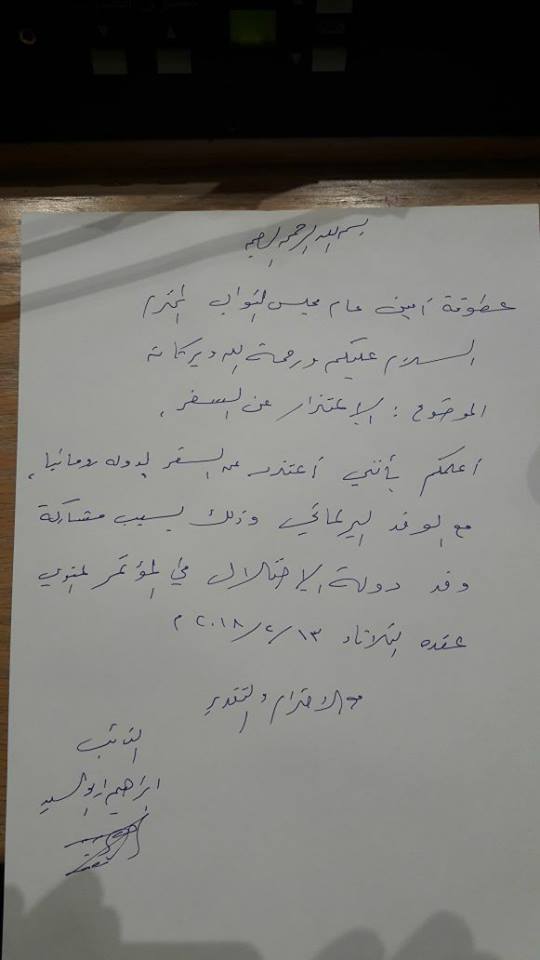 بسم الله الرحمن الرحيم
عطوفة أمين عام مجلس النواب المحترم
السلام عليكم ورحمة الله وبركاته
الموضوع : الإعتذار عن السفر .
أعلمكم بأنني أعتذر عن السفر لدولة رومانيا ،
مع الوفد البرلماني وذلك بسبب مشاركة
وفد دولة الإحتلال في المؤتمر المنوي
عقده الثلاثاء ٢٠١٨/٢/١٣ م
مع الاحترام والتقدير
النائب
ابراهيم ابو السيد